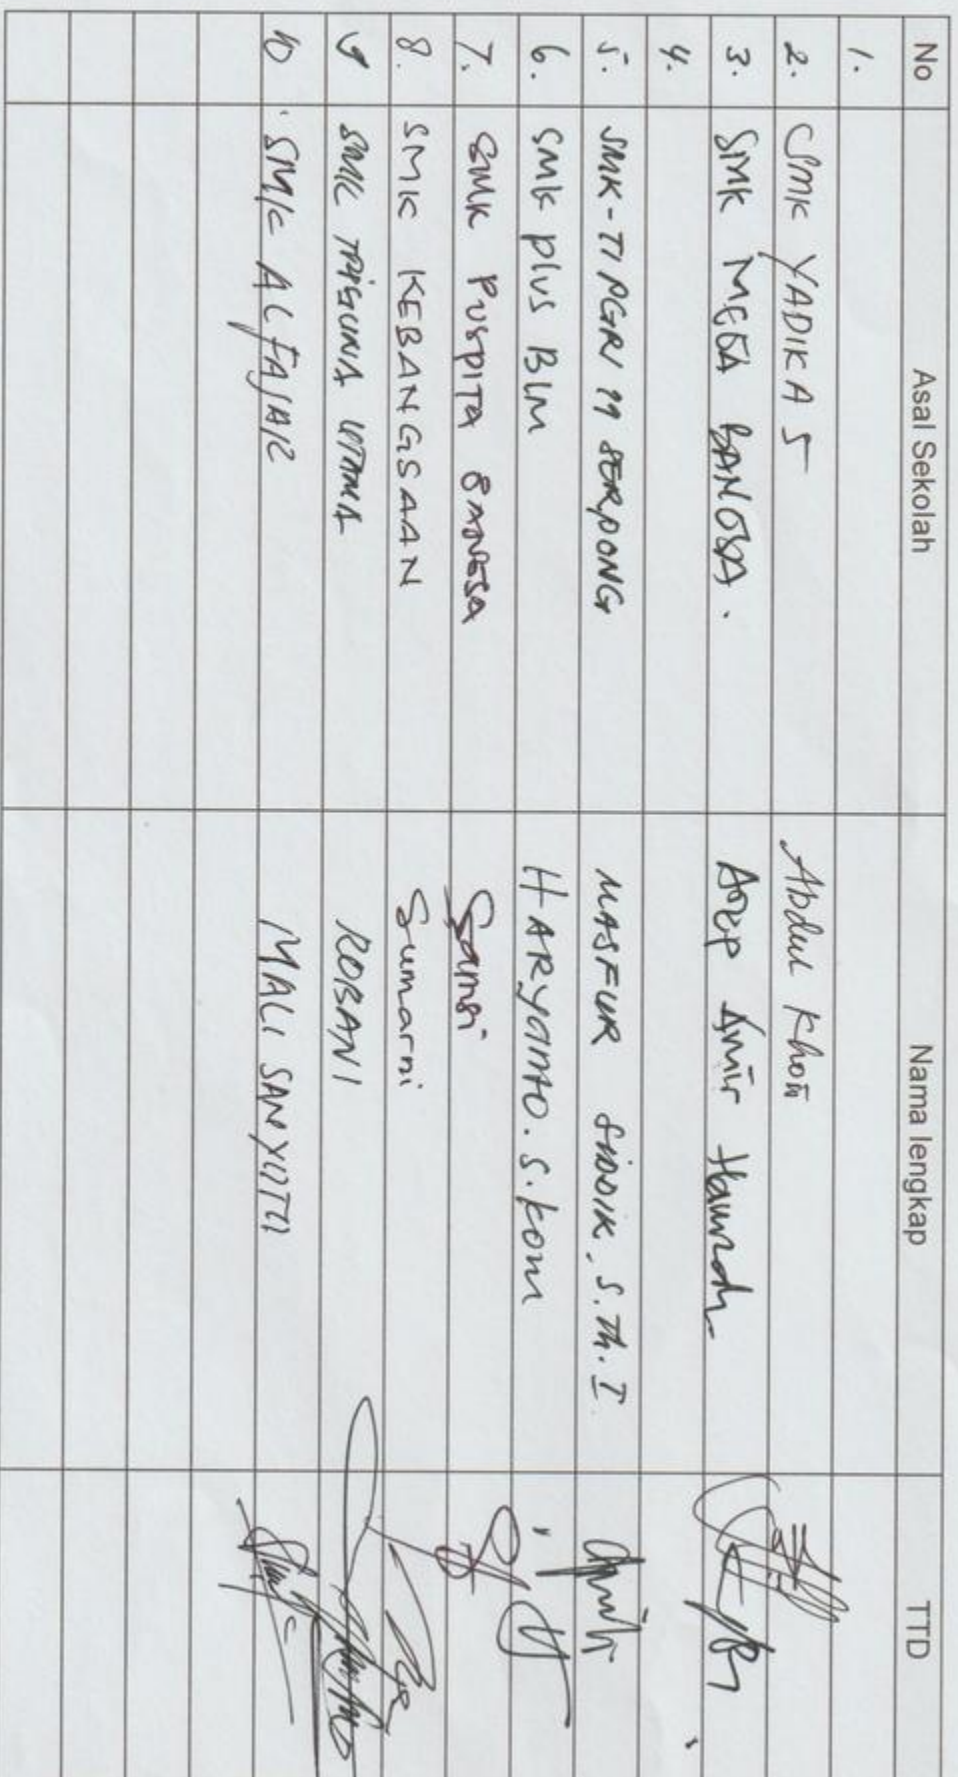 No Asal Sekolah Nama lengkap TTD
1.
2. SMK YADIKA 5 Abdul Khoir
3. SMK MEGA BANGSA. Asep Amir Hamzah
4.
5. SMK-TI PGRI 11 SERPONG MASFUR SIDDIK. S.Th.I
6. SMK plus BLM HARYANTO. S.Kom
7. SMK PUSPITA BANGSA Samsi
8. SMK KEBANGSAAN Sumarni
9 SMK TRIGUNA UTAMA ROBANI
10. SMK AL FAJAR MALI